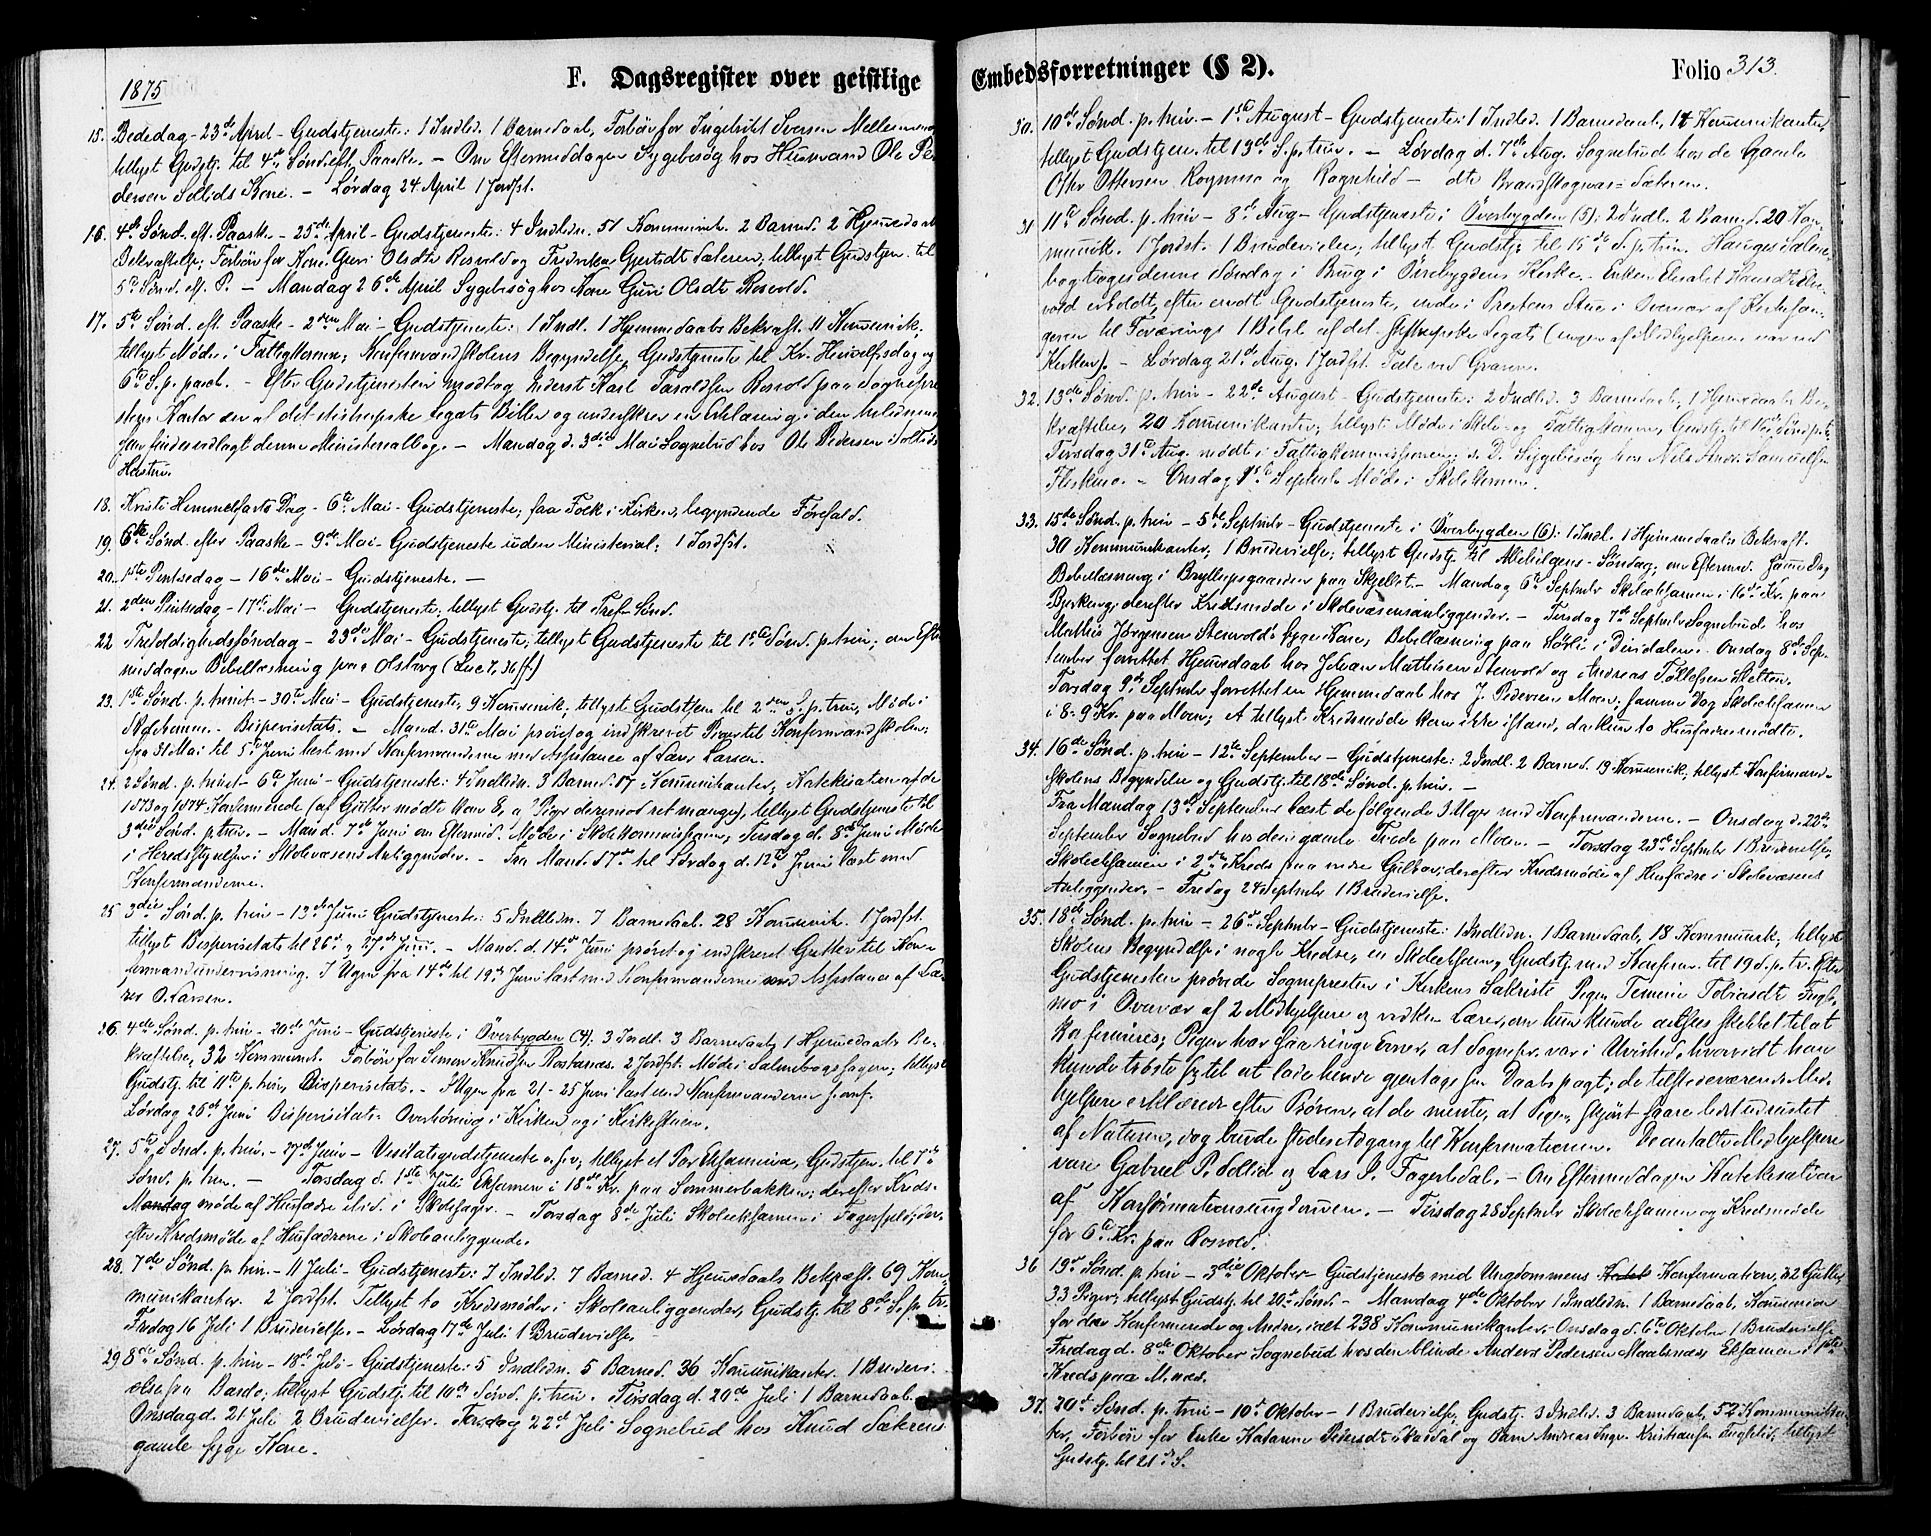 1875
F. Dagsregister over geistlige
15. Bededag - 23de April - Gudstjeneste: 1 Indled. 1 Barnedaab, Forbøn for Ingebrikt Iversen
tillyst Gudstj. til 4de Sønd. eft. Paaske. - Om Eftermiddagen Sygebesøg hos Husmand Ole Pe-
dersen Sollids Kone. - Lørdag 24 April 1 Jordfst.
16. 4de Sønd. eft. Paaske - 25de April - Gudstjeneste: 4 Indledn. 51 Kommunik. 2 Barned. 2 Hjemmedaabs
Bekræftelse; Forbøn for Kone Guri Olsdtr Rosvold og Fredrikka Sæteren; tillyst Gudstjen. til
5te Sønd. eft. P. - Mandag 26de April Sygebesøg hos Kone Guri Olsdt Rosvold.
17. 5te Sønd. eft. Paaske - 2den Mai - Gudstjeneste: 1 Indl. 1 Hjemmedaabs Bekræft. 11 Kommunik.
tillyst Møde i Fattigkomm; Konfirmandskolens Begyndelse, Gudstjeneste til Kr. Himmelfartsdag og
6te S. p. pasch. - Efter Gudstjenesten modtog Inderst Karl Rosvold paa Sognepre-
stens Kontor en af det Legats Bibler og underskrev en Erklæring i den
som findes vedlagt denne Ministerialbog. - Mandag d. 3die Mai Sognebud hos Ole Pedersen Sollids
Hustru.
18. Kristi Himmelfarts Dag - 6te Mai - Gudstjeneste, faa Folk i Kirken, begyndende Føreløsn.
19. 6te Sønd. efter Paaske - 9de Mai - Gudstjeneste uden Ministerial: 1 Jordfst.
20. 1ste Pintsedag - 16de Mai - Gudstjeneste. -
21. 2den Pintsedag - 17de Mai - Gudstjeneste, tillyst Gudstj. til Tref. Sønd.
22 Trefoldighedssøndag - 23de Mai - Gudstjeneste; tillyst Gudstjeneste til 1ste Sønd. p. trin; om Efter-
middagen Bibellæsning paa Olsborg (Luc 7, 36 ff)
23. 1ste Sønd. p. trinit. - 30te Mai - Gudstjeneste, 9 Kommunik; tillyst Gudstjen til 2den S. p. trin, Møde i
Bispevisitats. - Mand. 31te Mai prøvet og indskrevet Piger til Konfirmandskolen;
fra 31 Mai til 5te Juni læst med Konfirmanderne med Assistance af Lars Larsen.
24. 2 Sønd. p. trinit - 6te Juni - Gudstjeneste: 4 Indledn. 3 Barned. 17 Kommunikanter, Katekisation af de
1873 og 1874 Konfirmerede (af Gutter mødte kun 8, a Piger derimod ret mange), tillyst Gudstjeneste til
3die Sønd. p. trin. - Mand. 7de Juni om Eftermid. Møde i Skolekommissionen, Tirsdag d. 8de Juni Møde
i Herredsstyrelsen i Skolevæsens Anliggender. - Fra Mand. d 7de til Lørdag d. 12te Juni læst med
Konfirmanderne.
25 3die Sønd. p. trin - 13de Juni Gudstjeneste: 5 Indledn. 7 Barnedaab. 28 Kommunik. 1 Jordfst.
tillyst Bispevisitats til 26de og 27de Juni. - Mand. d. 14de Juni prøvet og indskrevet Gutter til Kon-
firmandundervisning. I Ugen fra 14de til 19de Juni læst med Konfirmanderne med Assistance af Læ-
rer O. Larsen.
26. 4de Sønd. p. trin - 20de Juni - Gudstjeneste i Øverbygden (4): 3 Indl. 3 Barnedaab, 1 Hjemmedaabs Be-
kræftelse, 32 Kommunik. Forbøn for Simon Knudsen Rostanæs. 2 Jordfst. Møde i Salmebogssagen; tillyst
Gudstj. til 11te p. trin, Bispevisitats. - I Ugen fra 21 - 25 Juni læst med Konfirmanderne
Lørdag 26de Juni Bispevisitats: Overhøring i Kirken og i Kirkestuen.
27. 5te Sønd. p. trin. - 27de Juni - Visitatsgudstjeneste o.s.v., tillyst et Par Eksamina, Gudstjen. til 7de
Sønd. p. trin. - Torsdag d. 1ste Juli Eksamen i 18de Kr. paa Sommerbakken; derefter Kreds-
møde af Husfædre etc. i Skolesager. - Torsdag 8de Juli Skoleeksamen i Fagerfjeld; der-
efter Kredsmøde af Husfædrene i Skoleanliggende.
28. 7de Sønd. p. trin. - 11 Juli - Gudstjeneste: 7 Indled. 7 Barned. 4 Hjemmedaabs Bekræft. 69 Kom-
munikanter. 2 Jordfst. Tillyst to Kredsmøder i Skoleanliggender, Gudstj. til 8de S. p. tr.
Fredag 16 Juli 1 Brudevielse. - Lørdag 17de Juli 1 Brudevielse.
29 8de Sønd. p. trin - 18de Juli - Gudstjeneste: 5 Indledn. 5 Barned. 36 Kommunikanter. 1 Brudevi-
else fra Bardo; tillyst Gudstj. til 10de Sønd. p. trin. Tirsdag d. 20de Juli 1 Barnedaab.
Onsdag d. 21 Juli 2 Brudevielser. Torsdag 22de Juli Sognebud hos Knud Sækrens
gamle syge Kone.
Embedsforretninger (§ 2).
Folio 313.
30. 10de Sønd. p. trin. - 1ste August - Gudstjeneste: 1 Indled. 1 Barnedaab, 14 Kommunikanter,
tillyst Gudstjen. til 13de S. p. trin. - Lørdag d. 7de Aug. Sognebud hos de Gamle
Ottersen Rognmo og Ragnhild - dtr Brandskognæs-Sæteren.
31 11te Sønd. p. trin - 8de Aug - Gudstjeneste i Øverbygden (5): 2 Indl. 2 Barned. 20 Kom-
munik. 1 Jordst. 1 Brudevielse; tillyst Gudstj. til 15de S. p. trin. Hauges Salme-
bog toges denne Søndag i Brug i Øverbygdens Kirke. - Enken Elisabet
vold erholdt, efter endt Gudstjeneste, inde i Prestens Stue i Overvær af Kirkesan-
geren til Forærings 1 Bibel af det Legat (ingen af Medhjelperne var ved
Kirken). - Lørdag 21de Aug. 1 Jordfst. Tale ved Graven.
32. 13de Sønd. p. trin - 22de August - Gudstjeneste: 2 Indled. 3 Barnedaab, 1 Hjemmedaabs Be-
kræftelse, 20 Kommunikanter, tillyst Møde i Skole- og Fattigkomm, Gudstj. til 16de Sønd p. tr.
Tirsdag 31te Aug. mødt i Fattigkommissionen; s. D. Sygebesøg hos Nils Andr. Samuelsen
Fleskmo. - Onsdag 1ste Septemb. Møde i Skolekomm.
33. 15de Sønd. p. trin - 5te Septembr - Gudstjeneste i Øverbygden (6): 1 Indl. 1 Hjemmedaabs Bekræft.
30 Kommunikanter, 1 Brudevielse; tillyst Gudstj. til Allehelgens-Søndag; om Eftermid. samme Dag
Bibellæsning i Bryllupsgaarden paa Skjellet. - Mandag 6te Septembr Skoleeksamen i 16de Kr. paa
Bjerkeng; derefter Kredsmøde i Skolevæsensanliggender. - Tirsdag 7de Septembr Sognebud hos
Mathis Jørgensen Stenvold's syge Kone, Bibellæsning paa Sørli i Dividalen. - Onsdag 8de Sep-
tember forrettet Hjemmedaab hos Johan Mathisen Stenvold og Andreas Tollefsen Holten.
Torsdag 9de Septembr forrettet en Hjemmedaab hos J. Pedersen Moen; samme Dag Skoleeksamen
i 8-9 Kr. paa Moen; Et tillyst Kredsmøde kom ikke istand, da kun to Husfædre mødte.
34. 16de Sønd. p. trin - 12te September - Gudstjeneste: 2 Indl. 2 Barned. 19 Kommunik, tillyst Konfirmand-
skolens Begyndelse og Gudstj. til 18de Sønd. p. trin. -
Fra Mandag 13de September læst de følgende 3 Uger med Konfirmanderne. - Onsdag d. 22de
September Sognebud hos den gamle Frode paa Moen. - Torsdag 23de Septembr 1 Brudevielse,
Skoleeksamen i 2den Kreds paa nedre Gulhav; derefter Kredsmøde af Husfædre i Skolevæsens
Anliggender. - Fredag 24 Septembr 1 Brudevielse.
35. 18de Sønd. p. trin - 26de Septembr - Gudstjeneste: 1 Indledn. 1 Barnedaab, 18 Kommunik, tillyst
Skolens Begyndelse i nogle Kredse, en Skoleeksam, Gudstj. med Konfirm. til 19 S. p. tr. Efter
Gudstjenesten prøvede Sognepresten i Kirkens Sakristi Pigen Temine Tobiasdt Fugl-
mo i Overvær af 2 Medhjelpere og vedkom. Lærer, om hun kunde ansees skikket til at
konfirmeres; Pigen har saa ringe Evner, at Sognepr. var i Uvished, hvorvidt han
kunde trøste sig til at lade hende gjentage sin Daabspagt; de tilstedeværende Med-
hjelpere erklærede efter Prøven, at de mente, at Pigen, skjønt saare lidt udrustet
af Naturen, dog burde stedes Adgang til Konfirmationen. De antalte Medhjelpere
vare Gabriel P. Sollid og Lars P. Fagerlidal. - Om Eftermiddagen Katekisation
af Konfirmationsungdommen. - Tirsdag 28 Septembr Skoleeksamen og Kredsmøde
for 6te Kr. paa Rosvold.
36 19de Sønd. p. trin - 3die Oktober - Gudstjeneste med Ungdommens Konfirmation, 32 Gutter,
33 Piger; tillyst Gudstj. til 20de Sønd. - Mandag 4de Oktober 1 Indledn. 1 Barnedaab, Kommunion
for de Konfirmerede og Andre, ialt 238 Kommunikanter. - Onsdag d. 6te Oktober 1 Brudevielse
Fredag d. 8de Oktober Sognebud hos den blinde Anders Pedersen Maalsnæs; Eksamen i 1ste
Kreds paa M.næs.
37. 20de Sønd. p. trin - 10de Oktober - 1 Brudevielse, Gudstj. 3 Indled. 3 Barnedaab, 52 Kommunikan-
ter, Forbøn for Enke Katarina Pedersdt Skardal og Barn Andreas Ingv. Kristiansen Fuglelid; tillyst
Gudstj. til 21de S.